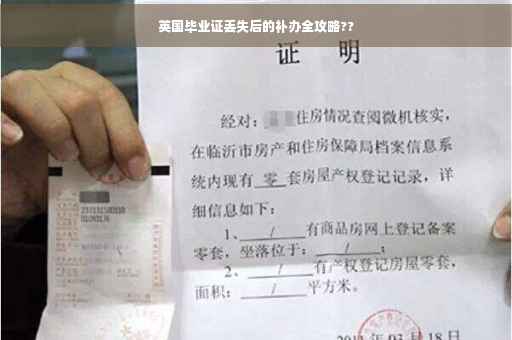 英国毕业证丢失后的补办全攻略??
证 明
经对：住房情况查阅微机核实，
在临沂市房产和住房保障局档案信息系
统内现有 零 套房屋产权登记记录，详
细信息如下：
1、 / 有商品房网上登记备案
零套，坐落位于： / ；
2、 / 有产权登记房屋零套，
面积： / 平方米。
年 03 月 18 日